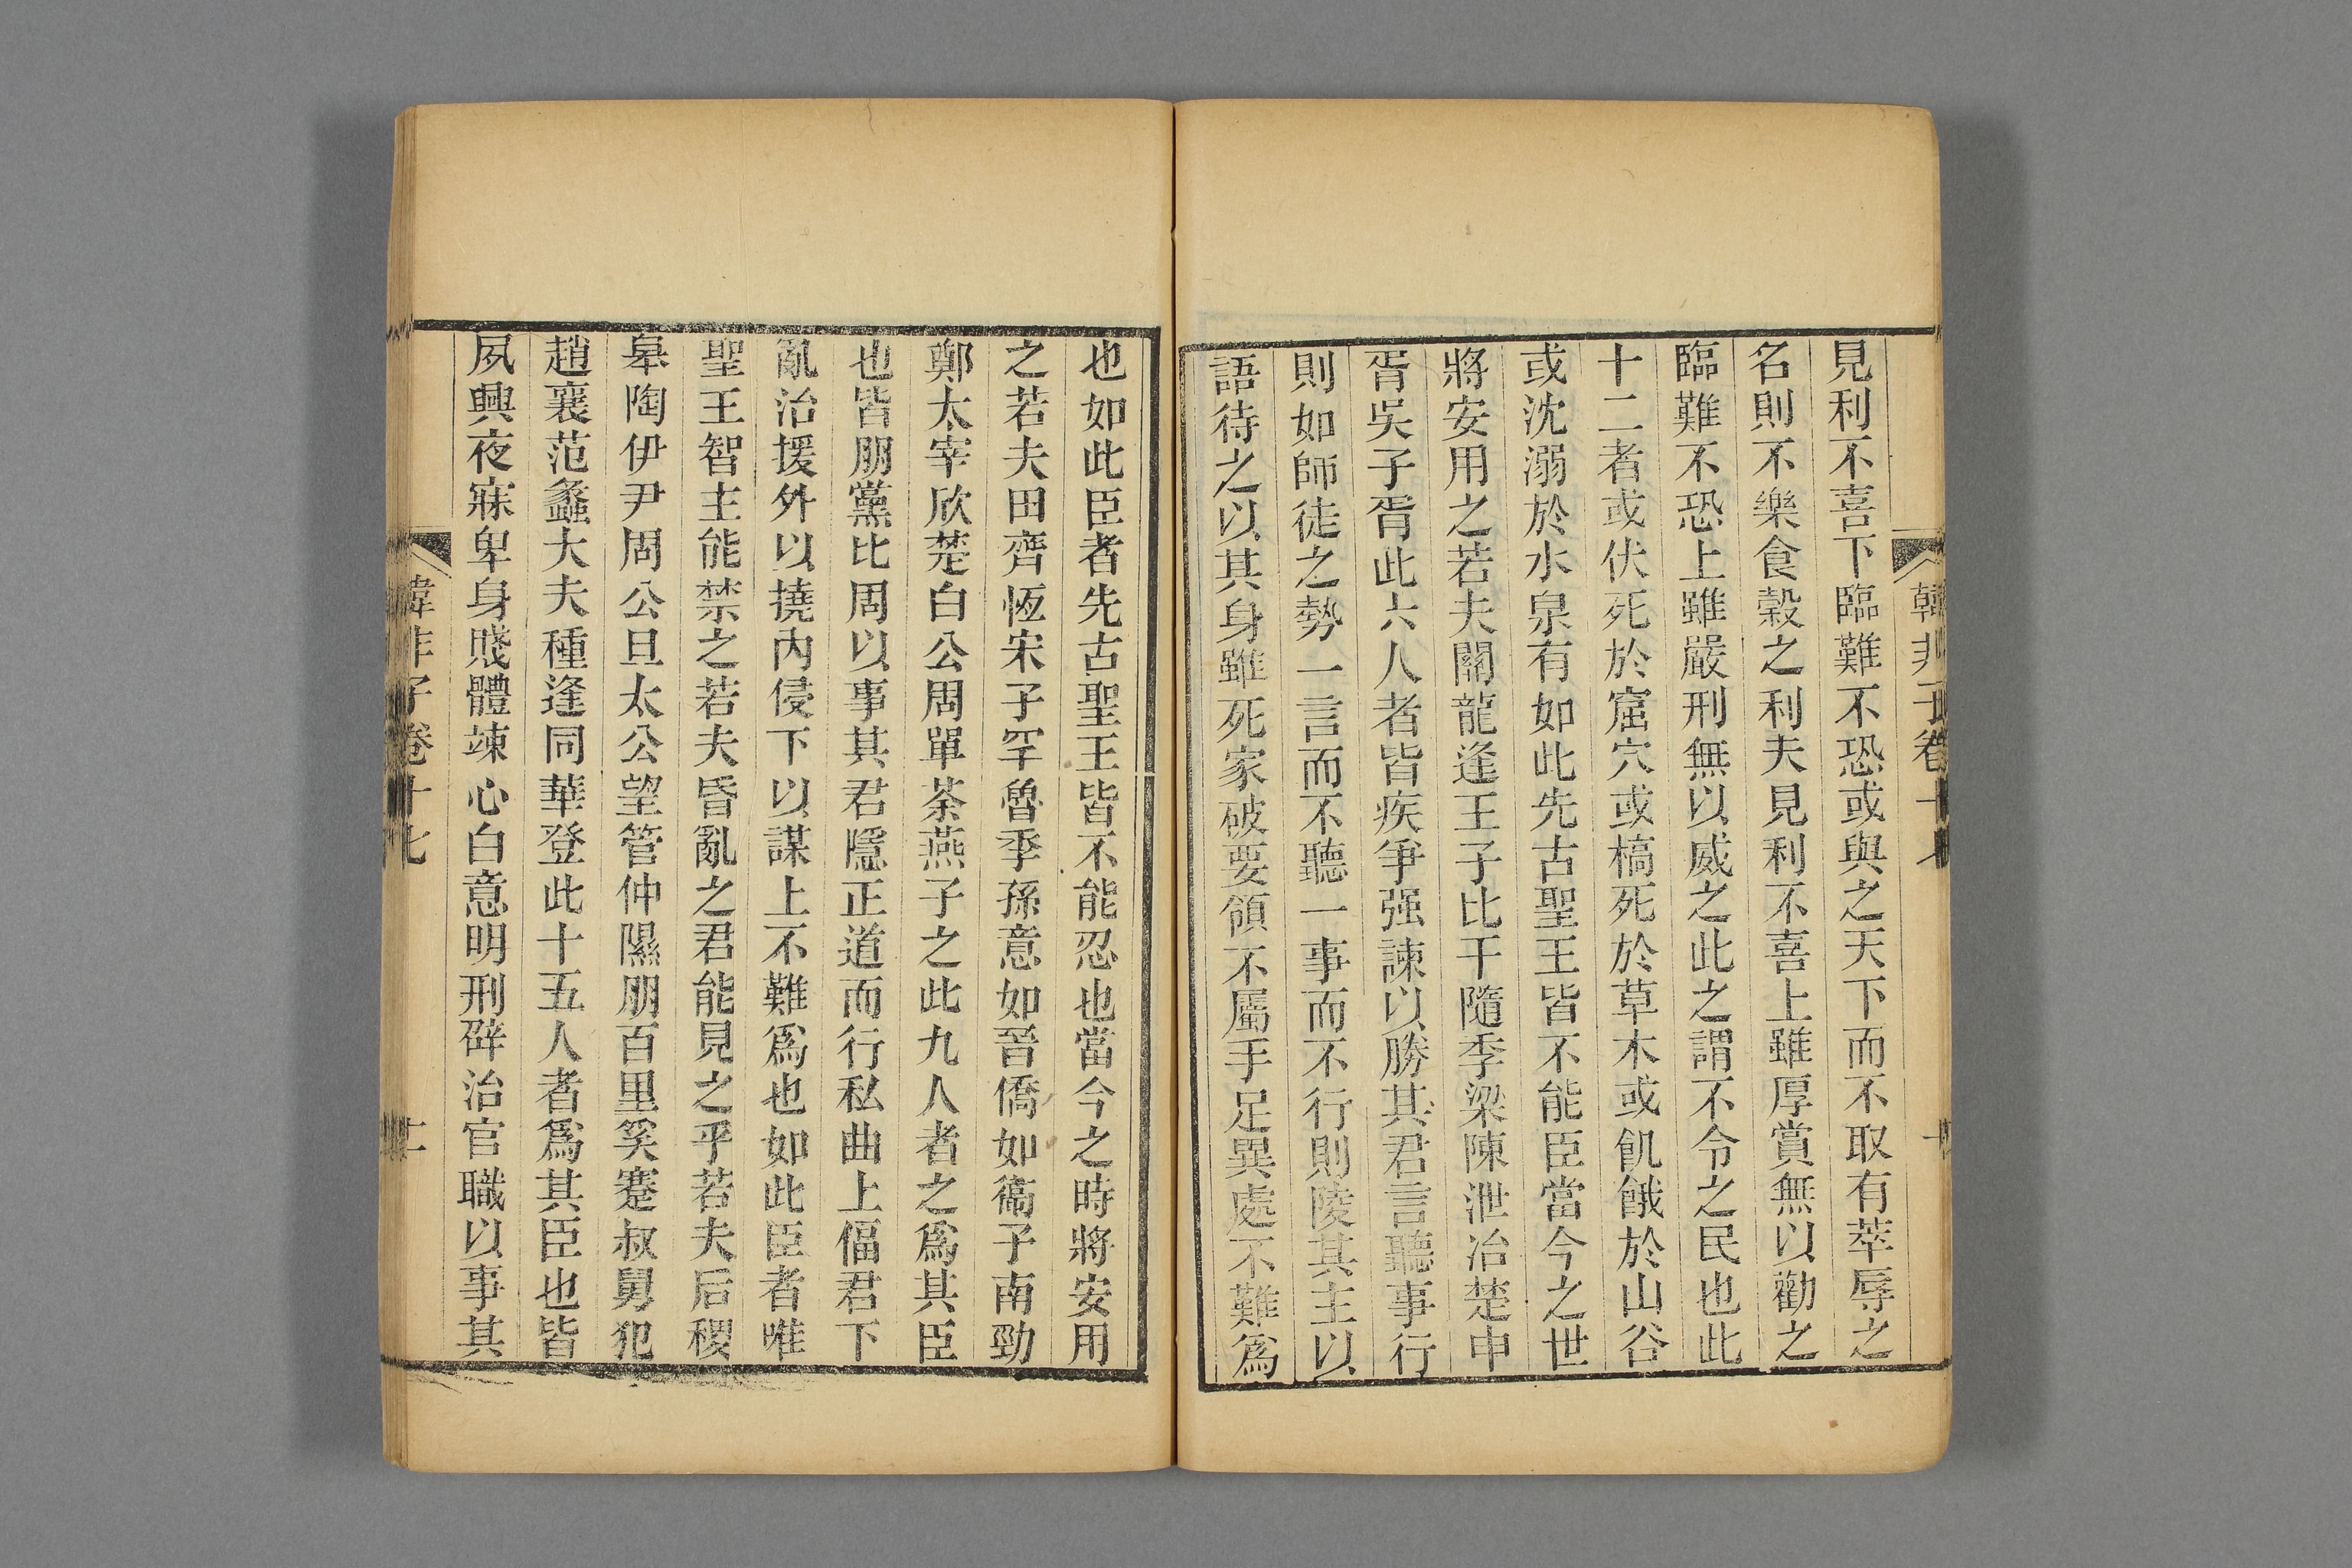 韓非子卷十七
見利不喜下臨難不恐或與之天下而不取有萃辱之
名則不樂食穀之利夫見利不喜上雖厚賞無以勸之
臨難不恐上雖嚴刑無以威之此之謂不令之民也此
十二者或伏死於窟穴或槁死於草木或飢餓於山谷
或沈溺於水泉有如此先古聖王皆不能臣當今之世
將安用之若夫關龍逢王子比干隨季梁陳泄冶楚申
胥吳子胥此六人者皆疾爭强諫以勝其君言聽事行
則如師徒之勢一言而不聽一事而不行則陵其主以
語待之以其身雖死家破要領不屬手足異處不難爲
也如此臣者先古聖王皆不能忍也當今之時將安用
之若夫田齊恆宋子罕魯季孫意如晉僑如衞子南勁
鄭太宰欣楚白公周單荼燕子之此九人者之爲其臣
也皆朋黨比周以事其君隱正道而行私曲上偪君下
亂治援外以撓內侵下以謀上不難爲也如此臣者唯
聖王智主能禁之若夫昏亂之君能見之乎若夫后稷
皋陶伊尹周公旦太公望管仲隰朋百里奚蹇叔舅犯
趙襄范蠡大夫種逢同華登此十五人者爲其臣也皆
夙興夜寐卑身賤體竦心白意明刑辟治官職以事其
韓非子卷十七